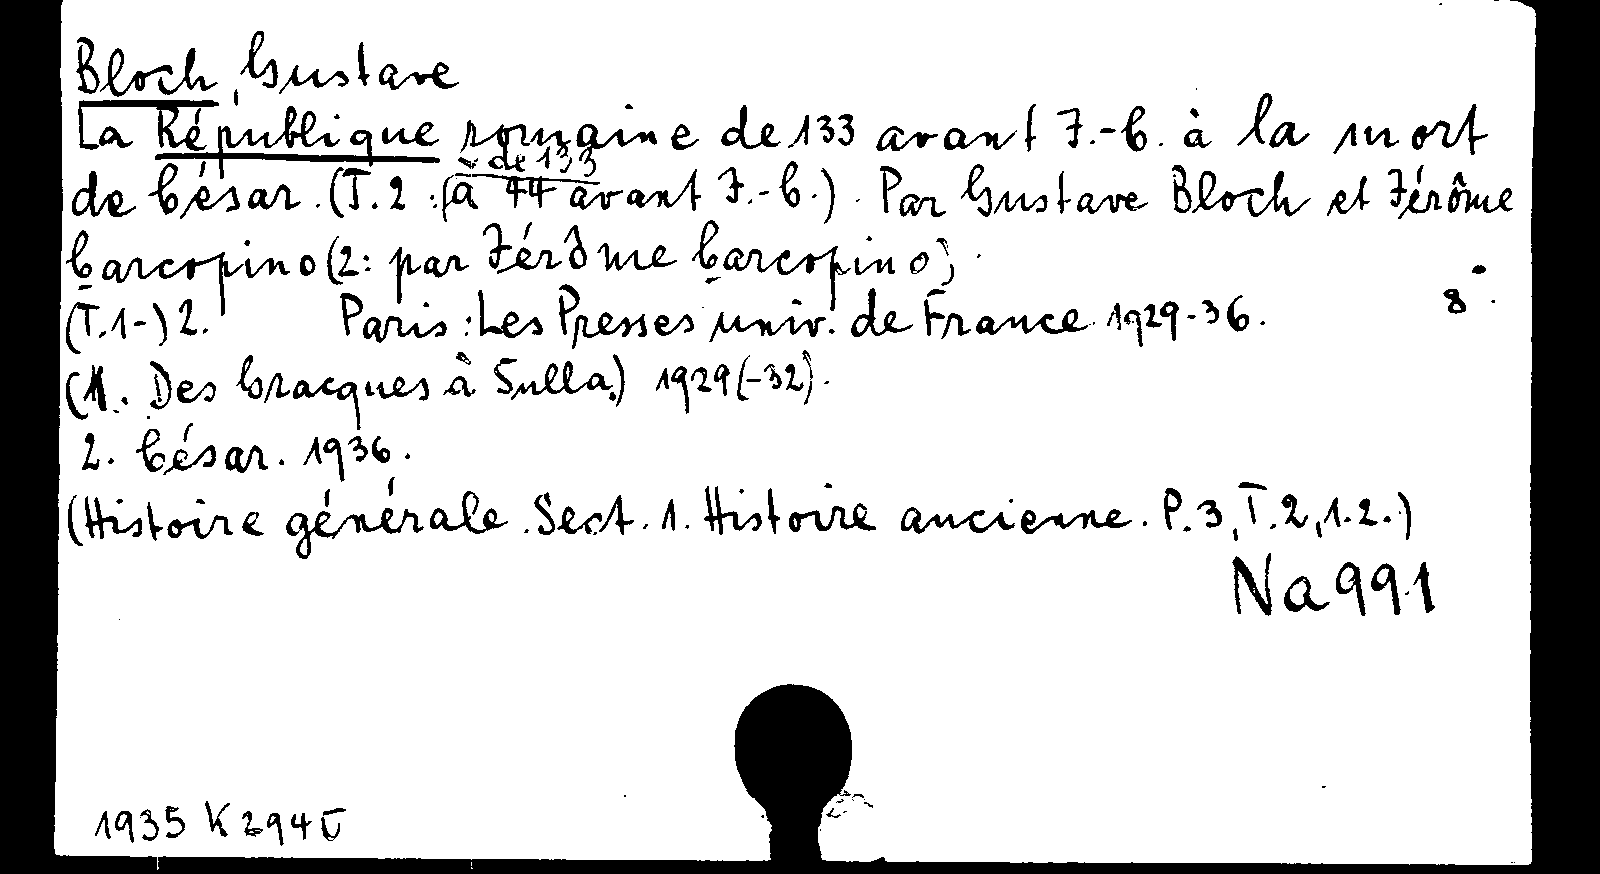 Bloch, Gustave
La République romaine de 133 avant J.-C. à la mort
de César. (T. 2: (de 133 à 44 avant J.-C.) Par Gustave Bloch et Jérôme
Carcopino (2: par Jérôme Carcopino).
(T. 1-) 2. Paris: Les Presses univ. de France 1929-36. 8°.
(1. Des Gracques à Sulla.) 1929(-32).
2. César. 1936.
(Histoire générale. Sect. 1. Histoire ancienne. P. 3, T. 2, 1. 2.)
Na 991
1935 K 294